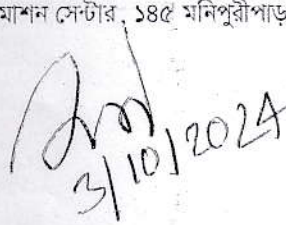 মাশন সেন্টার, ১৪৫ মনিপুরীপাড়
3/10/2024